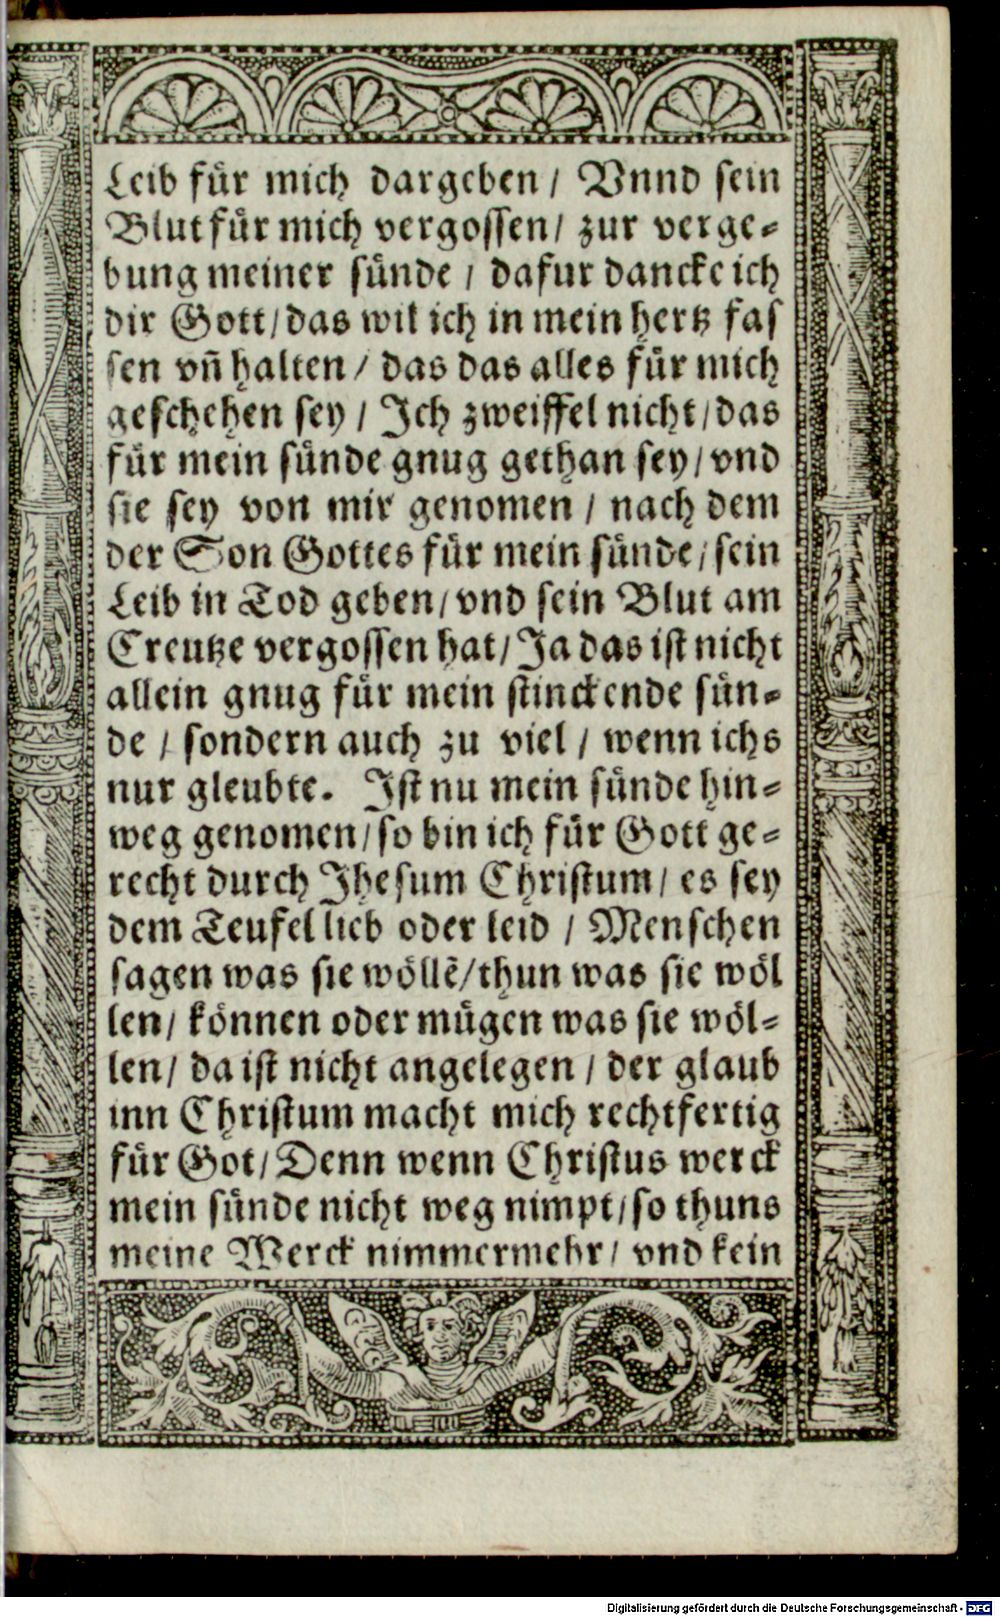 Leib fuͤr mich dargeben / Vnnd sein
Blut fuͤr mich vergossen / zur verge⸗
bung meiner suͤnde / dafur dancke ich
dir Gott / das wil ich in mein hertz fas
sen vñ halten / das das alles fuͤr mich
geschehen sey / Ich zweiffel nicht / das
fuͤr mein suͤnde gnug gethan sey / vnd
sie sey von mir genomen / nach dem
der Son Gottes fuͤr mein suͤnde / sein
Leib in Tod geben / vnd sein Blut am
Creutze vergossen hat / Ja das ist nicht
allein gnug fuͤr mein stinckende suͤn⸗
de / sondern auch zu viel / wenn ichs
nur gleubte. Ist nu mein suͤnde hin⸗
weg genomen / so bin ich fuͤr Gott ge⸗
recht durch Jhesum Christum / es sey
dem Teufel lieb oder leid / Menschen
sagen was sie woͤllẽ / thun was sie woͤl
len / koͤnnen oder muͤgen was sie woͤl⸗
len / da ist nicht angelegen / der glaub
inn Christum macht mich rechtfertig
fuͤr Got / Denn wenn Christus werck
mein suͤnde nicht weg nimpt / so thuns
meine Werck nimmermehr / vnd kein
Digitalisierung gefördert durch die Deutsche Forschungsgemeinschaft - DFG